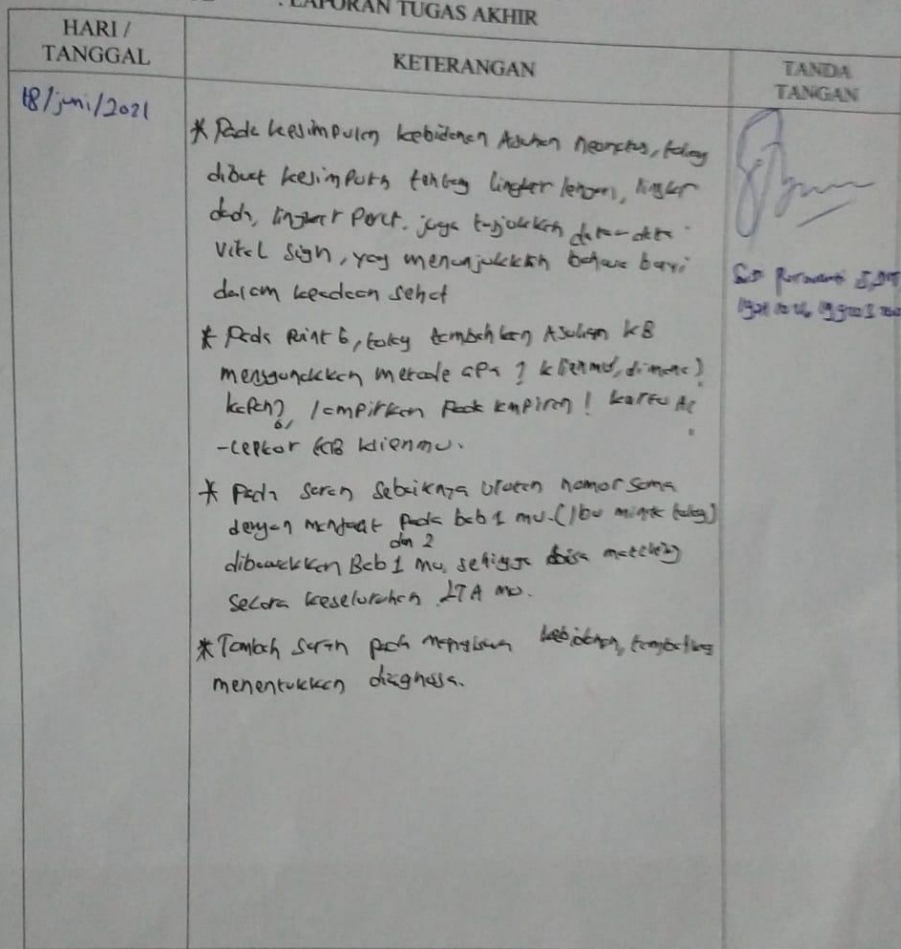 : LAPORAN TUGAS AKHIR
HARI /
TANGGAL
KETERANGAN
TANDA
TANGAN
18/juni/2021
* Pada kesimpulan kebidanan Asuhan neonatus, tolong
dibuat kesimpulan tentang lingkar lengan, lingkar
dada, lingkar perut. juga tunjukkan data-data
vital sign, yang menunjukkan bahwa bayi
dalam keadaan sehat
* Pada point 6, tolong tambahkan Asuhan KB
menggunakkan metode apa ? klienmu, dimana ?
kapan?, lampirkan pada lampiran ! kartu Ac
-ceptor KB klienmu.
* Pada saran sebaiknya urutan nomor sama
dengan manfaat pada bab 1 mu. (Ibu minta tolong)
dan 2
dibawakkan Bab 1 mu, sehingga bisa matching
secara keseluruhan LTA mu.
* Tambah saran pada kebidanan,
menentukkan diagnosa.